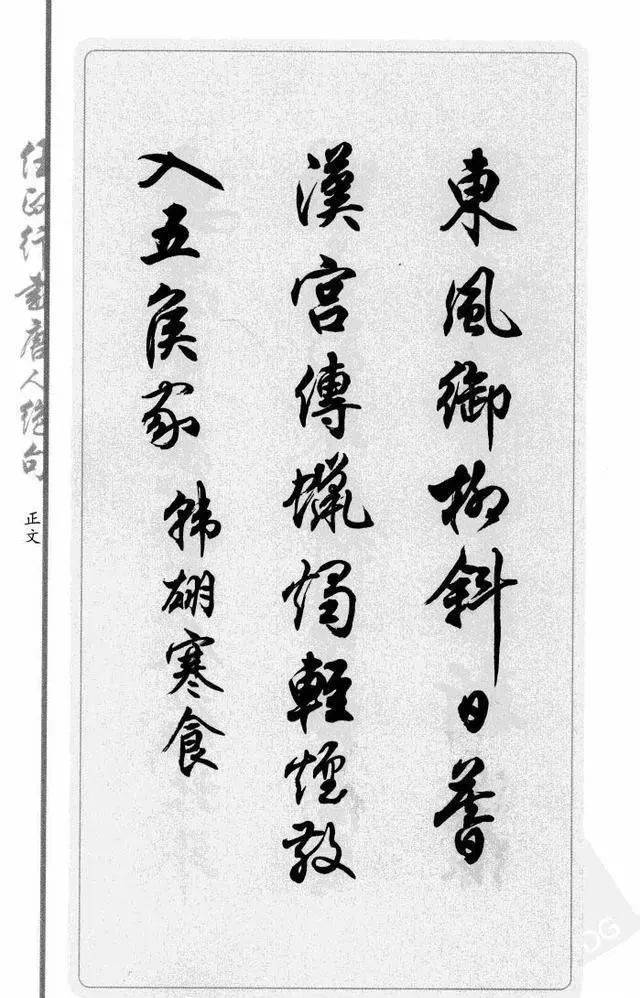 東風御柳斜日暮
漢宮傳蠟燭輕煙散
入五侯家 韩翃寒食
任政行書唐人绝句
正文
DG